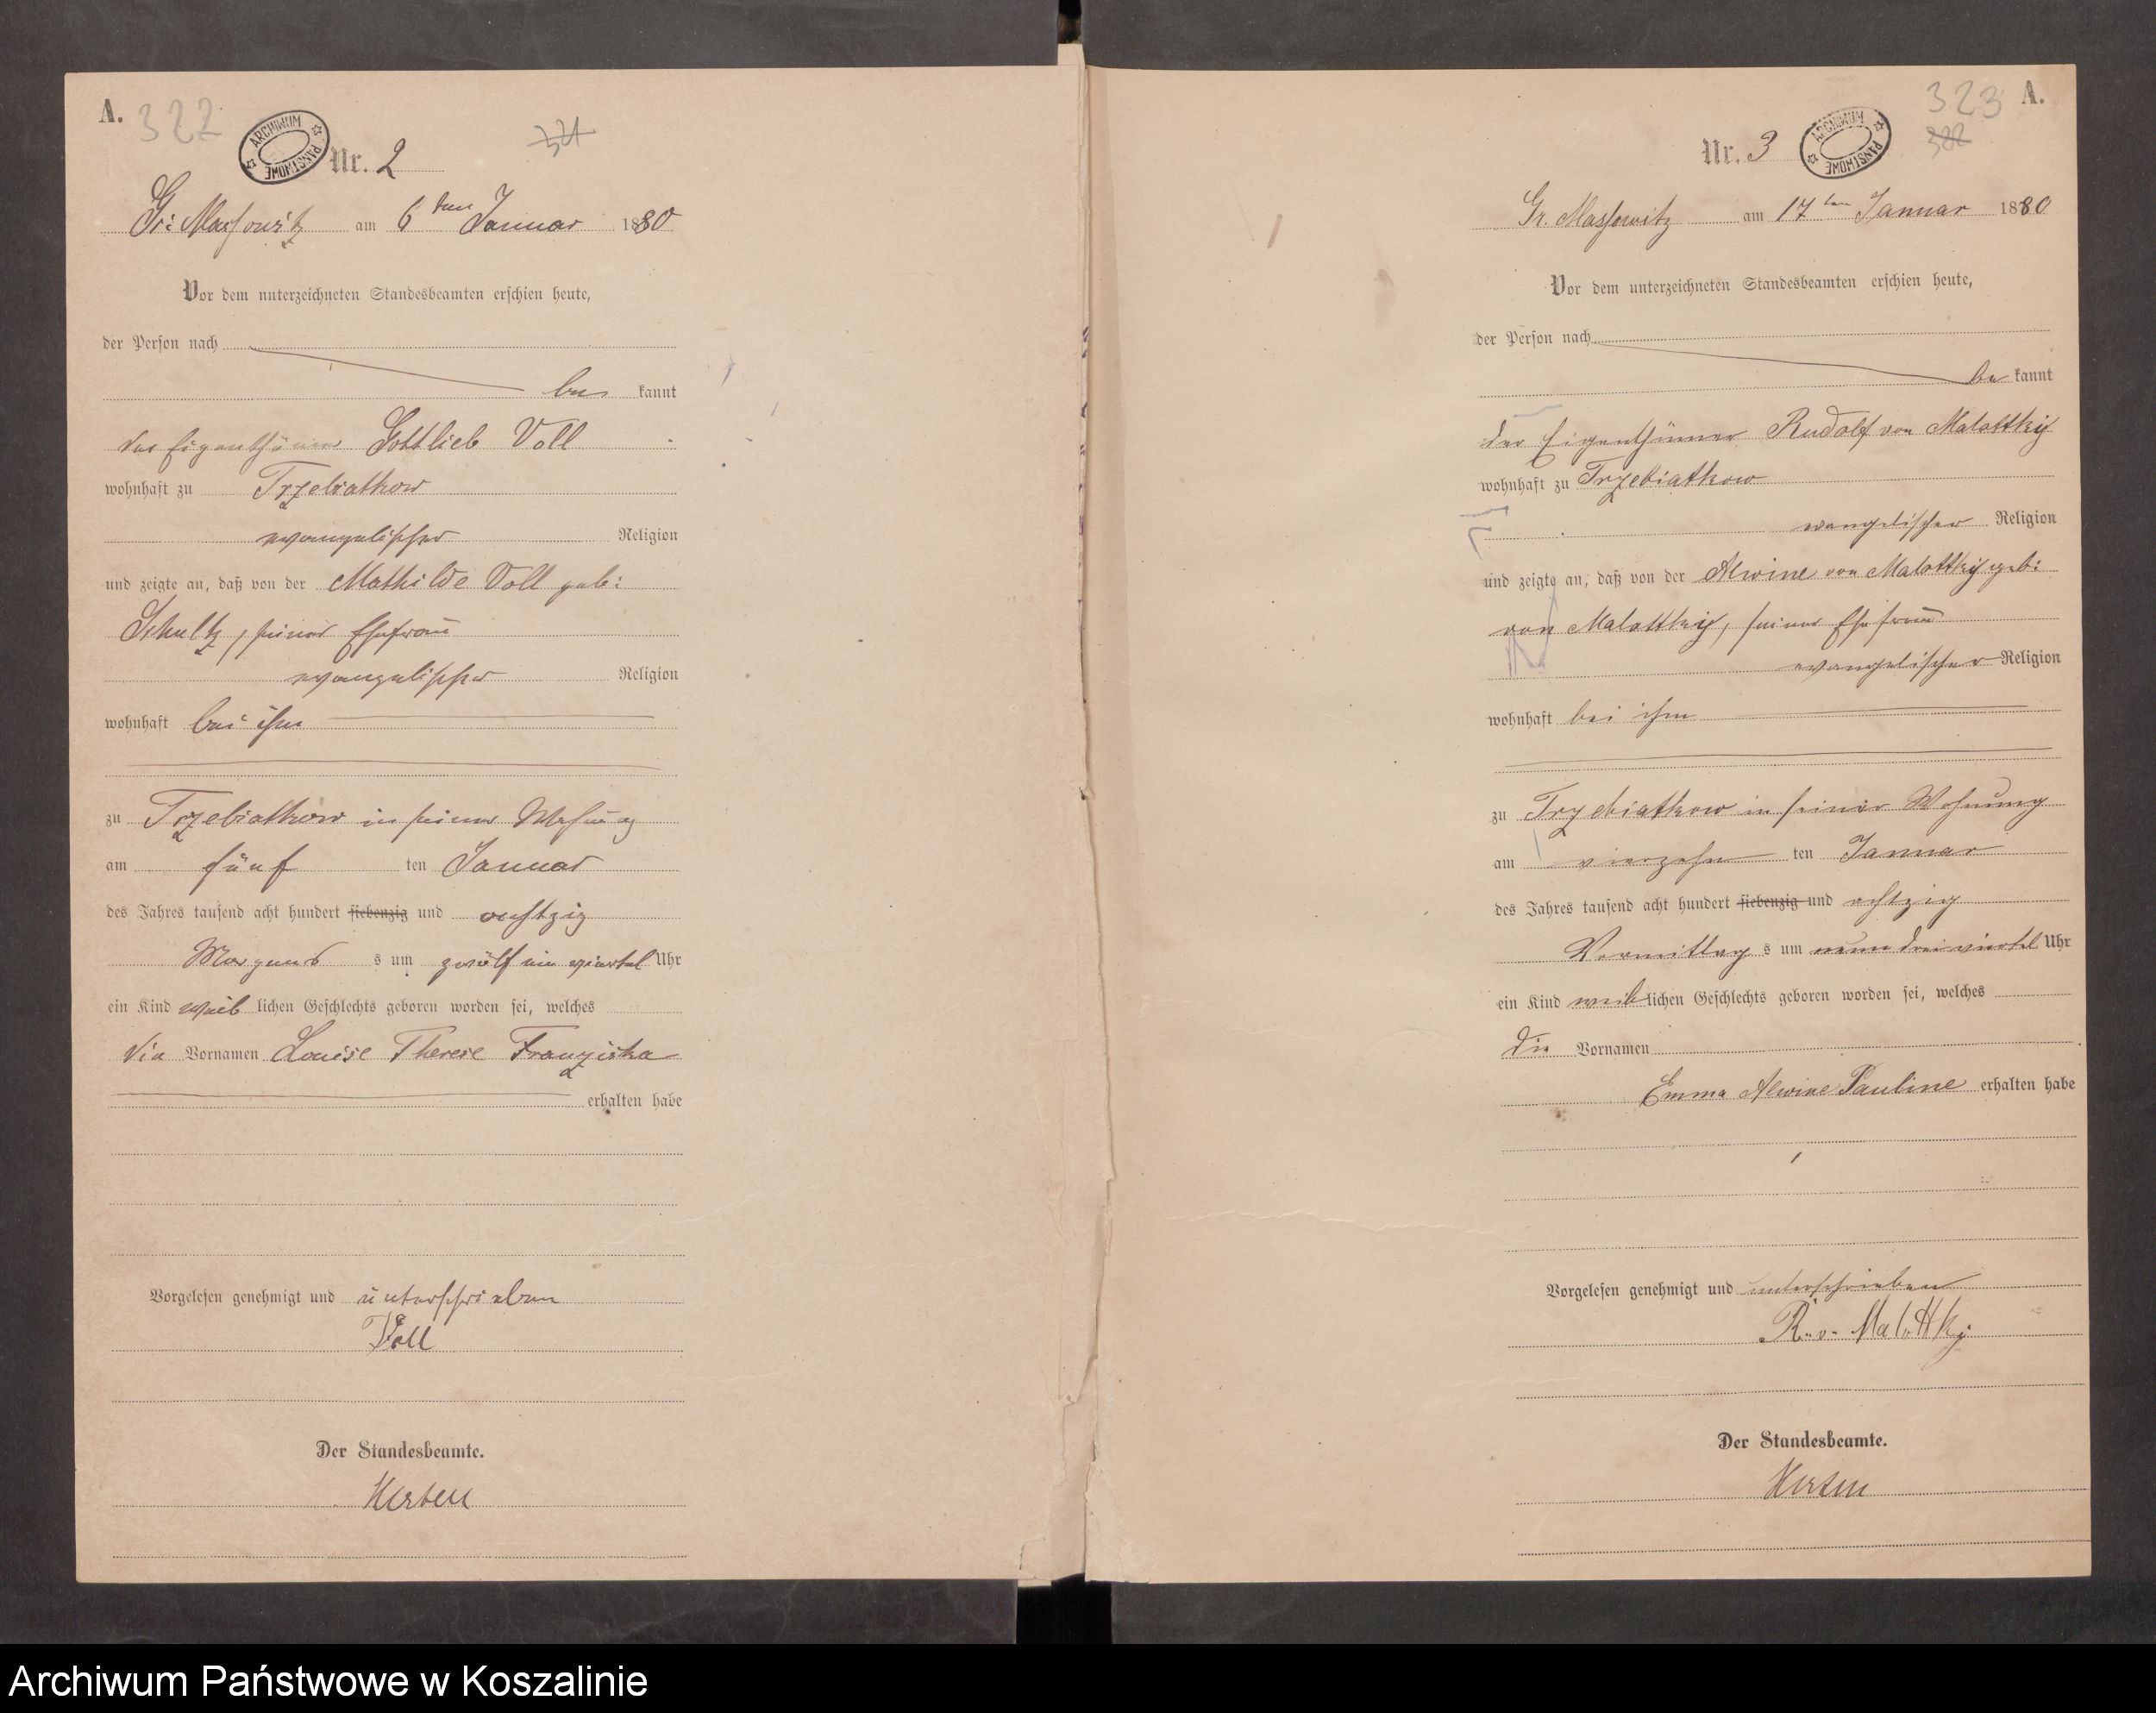 A. 322
ARCHIWUM PAŃSTWOWE
321
Nr. 2
Gr: Massowitz am 6ten Januar 1880
Vor dem unterzeichneten Standesbeamten erschien heute,
der Person nach
be kannt
der Eigenthümer Gottlieb Voll
wohnhaft zu Trzebiatkow
evangelischer Religion
und zeigte an, daß von der Mathilde Voll geb:
Schultz, seiner Ehefrau
evangelischer Religion
wohnhaft bei ihm
zu Trzebiatkow in seiner Wohnung
am fünf ten Januar
des Jahres tausend acht hundert siebenzig und achtzig
Morgens s um zwölf ein viertel Uhr
ein Kind weib lichen Geschlechts geboren worden sei, welches
die Vornamen Louise Therese Franziska
erhalten habe
Vorgelesen genehmigt und unterschrieben
Voll
Der Standesbeamte.
323 A.
322
ARCHIWUM PAŃSTWOWE
Nr. 3
Gr. Massowitz am 17ten Januar 1880
Vor dem unterzeichneten Standesbeamten erschien heute,
der Person nach
be kannt
der Eigenthümer Rudolf von Malottky
wohnhaft zu Trzebiatkow
evangelischer Religion
und zeigte an, daß von der Alwine von Malottky geb:
von Malottky, seiner Ehefrau
evangelischer Religion
wohnhaft bei ihm
zu Trzebiatkow in seiner Wohnung
am vierzehn ten Januar
des Jahres tausend acht hundert siebenzig und achtzig
Vormittag s um neun dreiviertel Uhr
ein Kind weib lichen Geschlechts geboren worden sei, welches
die Vornamen
Emma Alwine Pauline erhalten habe
Vorgelesen genehmigt und unterschrieben
R. v. Malottky
Der Standesbeamte.
Archiwum Państwowe w Koszalinie